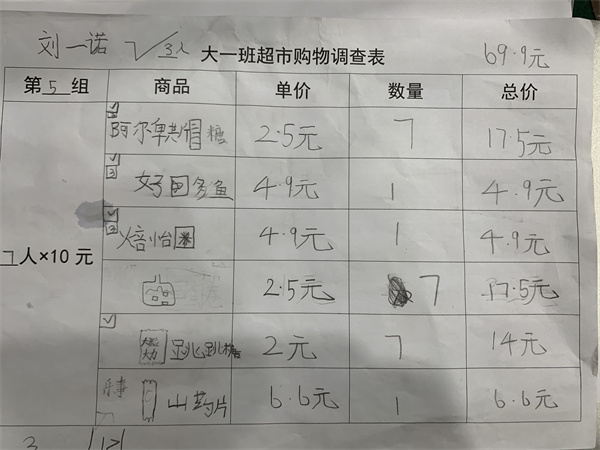 刘一诺 √3人 大一班超市购物调查表 69.9元
第5组 商品 单价 数量 总价
7人×10元
阿尔卑斯糖 2.5元 7 17.5元
好多鱼 4.9元 1 4.9元
焙怡 4.9元 1 4.9元
2.5元 7 17.5元
跳跳糖 2元 7 14元
山药片 6.6元 1 6.6元
3